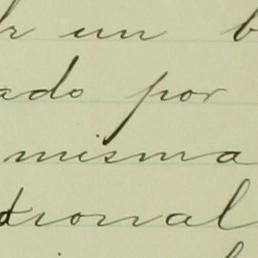 r un b
ado por
misma
ional